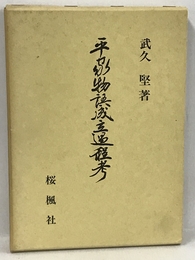 武久 堅著
平家物語成立過程考
桜楓社